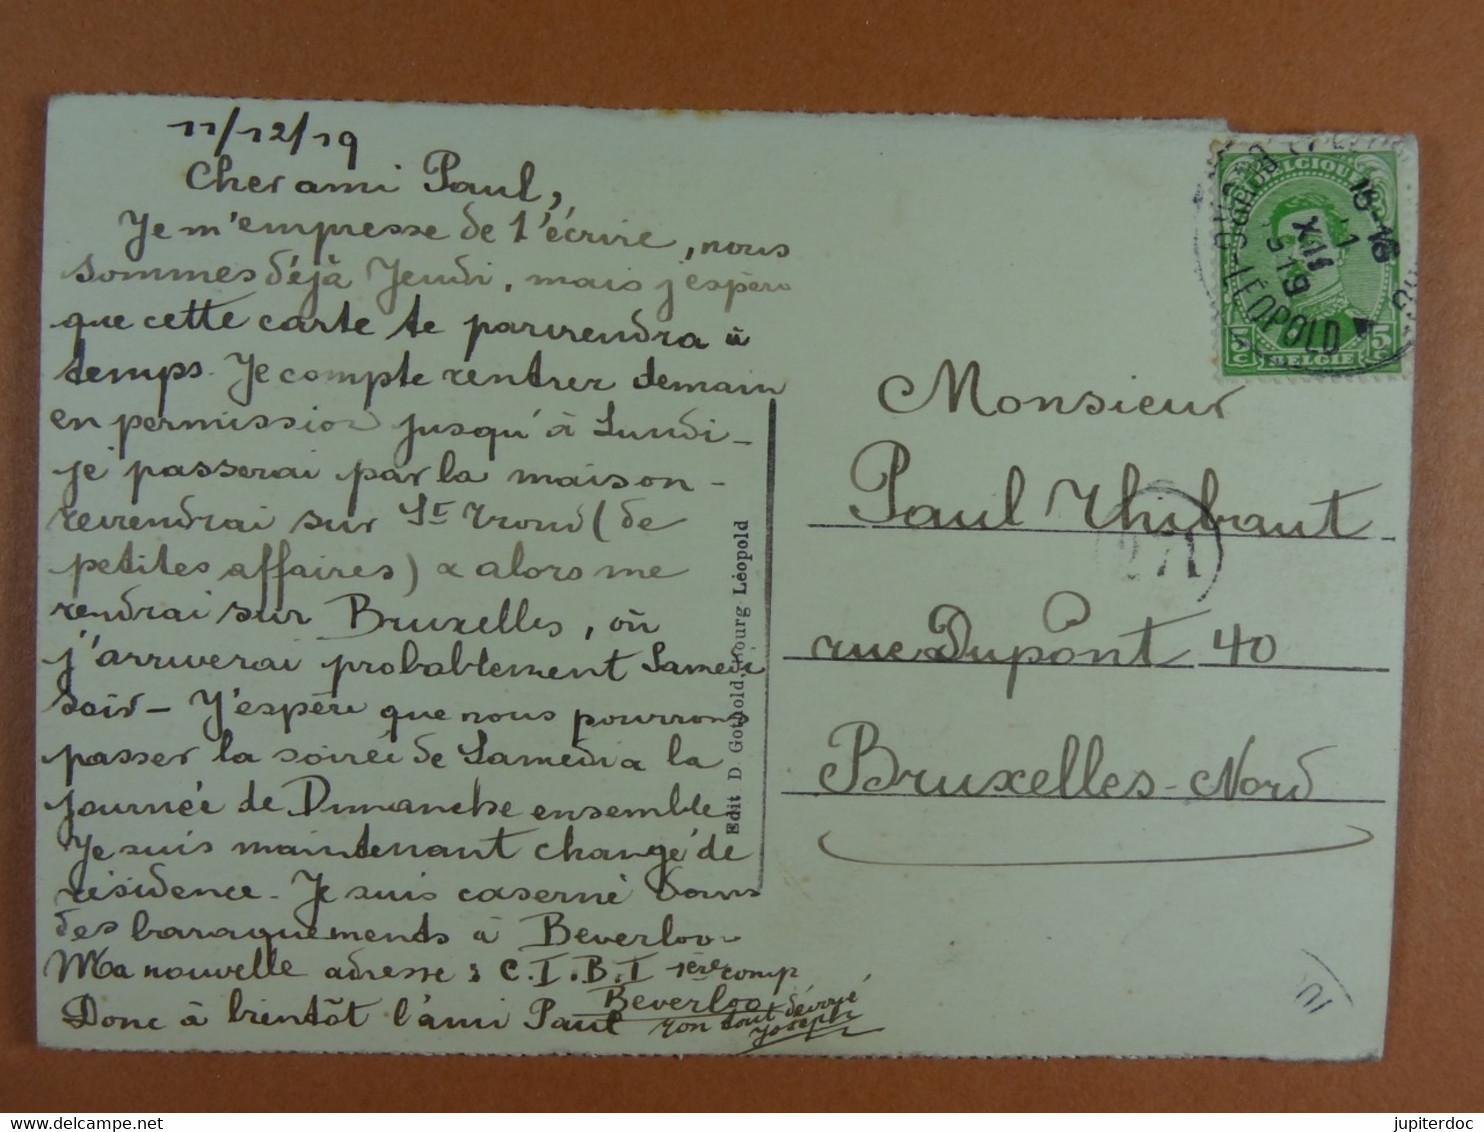 11/12/19
Cher ami Paul,
Je m'empresse de t'écrire, nous
sommes déjà Jeudi, mais j'espère
que cette carte te parviendra à
temps. Je compte rentrer demain
en permission jusqu'à Lundi -
je passerai par la maison -
reviendrai sur St Trond (de
petites affaires) & alors me
rendrai sur Bruxelles, où
j'arriverai probablement Samedi
soir - J'espère que nous pourrons
passer la soirée de Samedi & la
journée de Dimanche ensemble
Je suis maintenant changé de
résidence. Je suis caserné dans
des baraquements à Beverloo
Ma nouvelle adresse : C.I.B.I 1ère comp
Beverloo
Donc à bientôt l'ami Paul
ton tout dévoué
Joseph
Edit D Gotbold, Bourg Léopold
BELGIQUE
5 5
BELGIE
LÉOPOLD
XII
Monsieur
Paul Thibaut
rue Dupont 40
Bruxelles-Nord
jupiterdoc
delcampe.net